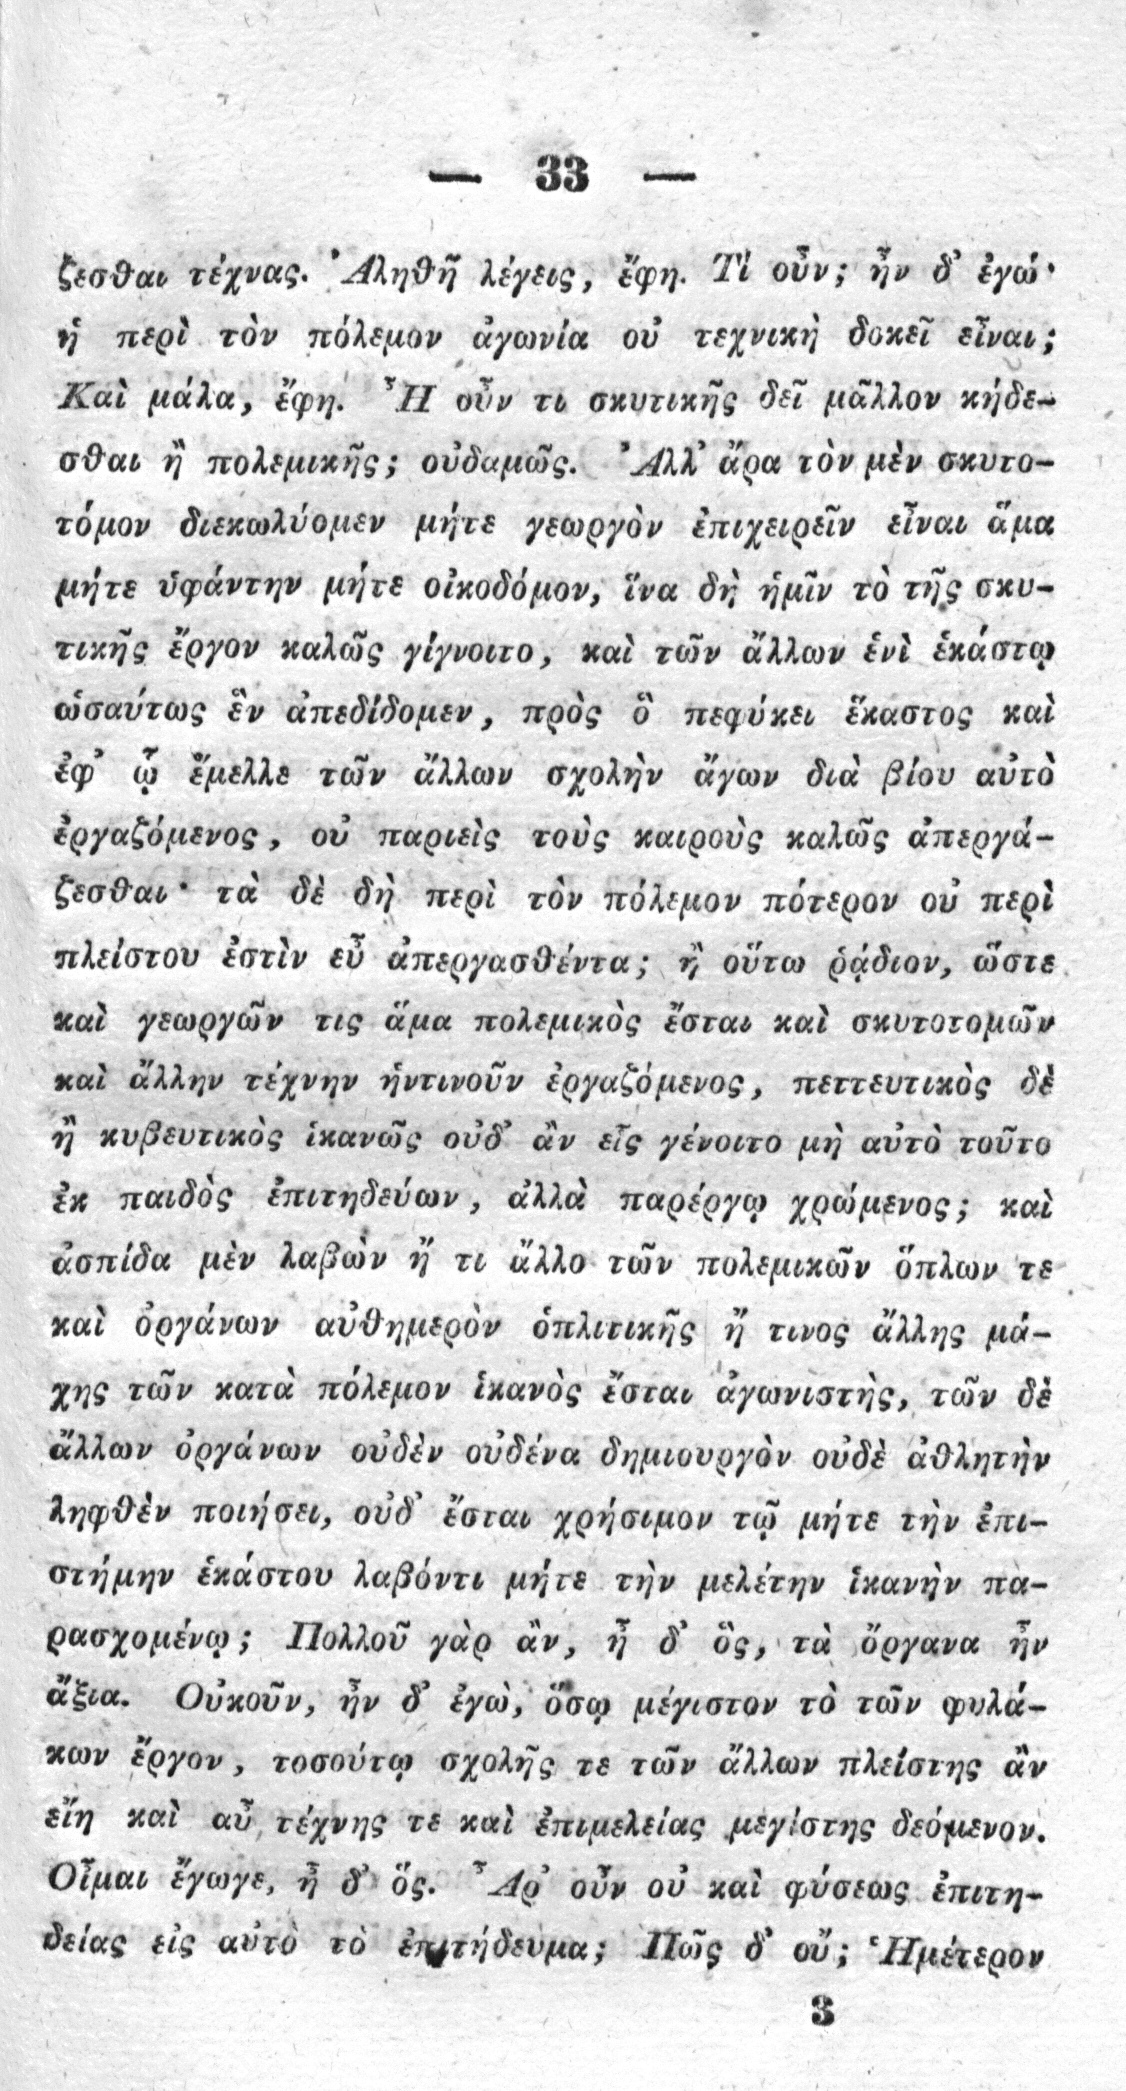 — 33 —
ζεσθαι τέχνας. Ἀληθῆ λέγεις, ἔφη. Τί οὖν; ἦν δ᾽ ἐγώ·
ἡ περὶ τὸν πόλεμον ἀγωνία οὐ τεχνικὴ δοκεῖ εἶναι;
Καὶ μάλα, ἔφη. Ἦ οὖν τι σκυτικῆς δεῖ μᾶλλον κήδε-
σθαι ἢ πολεμικῆς; οὐδαμῶς. Ἀλλ᾽ ἄρα τὸν μὲν σκυτο-
τόμον διεκωλύομεν μήτε γεωργὸν ἐπιχειρεῖν εἶναι ἅμα
μήτε ὑφάντην μήτε οἰκοδόμον, ἵνα δὴ ἡμῖν τὸ τῆς σκυ-
τικῆς ἔργον καλῶς γίγνοιτο, καὶ τῶν ἄλλων ἑνὶ ἑκάστῳ
ὡσαύτως ἓν ἀπεδίδομεν, πρὸς ὃ πεφύκει ἕκαστος καὶ
ἐφ᾽ ᾧ ἔμελλε τῶν ἄλλων σχολὴν ἄγων διὰ βίου αὐτὸ
ἐργαζόμενος, οὐ παριεὶς τοὺς καιροὺς καλῶς ἀπεργά-
ζεσθαι· τὰ δὲ δὴ περὶ τὸν πόλεμον πότερον οὐ περὶ
πλείστου ἐστὶν εὖ ἀπεργασθέντα; ἢ οὕτω ῥᾴδιον, ὥστε
καὶ γεωργῶν τις ἅμα πολεμικὸς ἔσται καὶ σκυτοτομῶν
καὶ ἄλλην τέχνην ἡντινοῦν ἐργαζόμενος, πεττευτικὸς δὲ
ἢ κυβευτικὸς ἱκανῶς οὐδ᾽ ἂν εἷς γένοιτο μὴ αὐτὸ τοῦτο
ἐκ παιδὸς ἐπιτηδεύων, ἀλλὰ παρέργῳ χρώμενος; καὶ
ἀσπίδα μὲν λαβὼν ἤ τι ἄλλο τῶν πολεμικῶν ὅπλων τε
καὶ ὀργάνων αὐθημερὸν ὁπλιτικῆς ἤ τινος ἄλλης μά-
χης τῶν κατὰ πόλεμον ἱκανὸς ἔσται ἀγωνιστὴς, τῶν δὲ
ἄλλων ὀργάνων οὐδὲν οὐδένα δημιουργὸν οὐδὲ ἀθλητὴν
ληφθὲν ποιήσει, οὐδ᾽ ἔσται χρήσιμον τῷ μήτε τὴν ἐπι-
στήμην ἑκάστου λαβόντι μήτε τὴν μελέτην ἱκανὴν πα-
ρασχομένῳ; Πολλοῦ γὰρ ἂν, ἦ δ᾽ ὃς, τὰ ὄργανα ἦν
ἄξια. Οὐκοῦν, ἦν δ᾽ ἐγὼ, ὅσῳ μέγιστον τὸ τῶν φυλά-
κων ἔργον, τοσούτῳ σχολῆς τε τῶν ἄλλων πλείστης ἂν
εἴη καὶ αὖ τέχνης τε καὶ ἐπιμελείας μεγίστης δεόμενον.
Οἶμαι ἔγωγε, ἦ δ᾽ ὅς. Ἆρ᾽ οὖν οὐ καὶ φύσεως ἐπιτη-
δείας εἰς αὐτὸ τὸ ἐπιτήδευμα; Πῶς δ᾽ οὔ; Ἡμέτερον
3